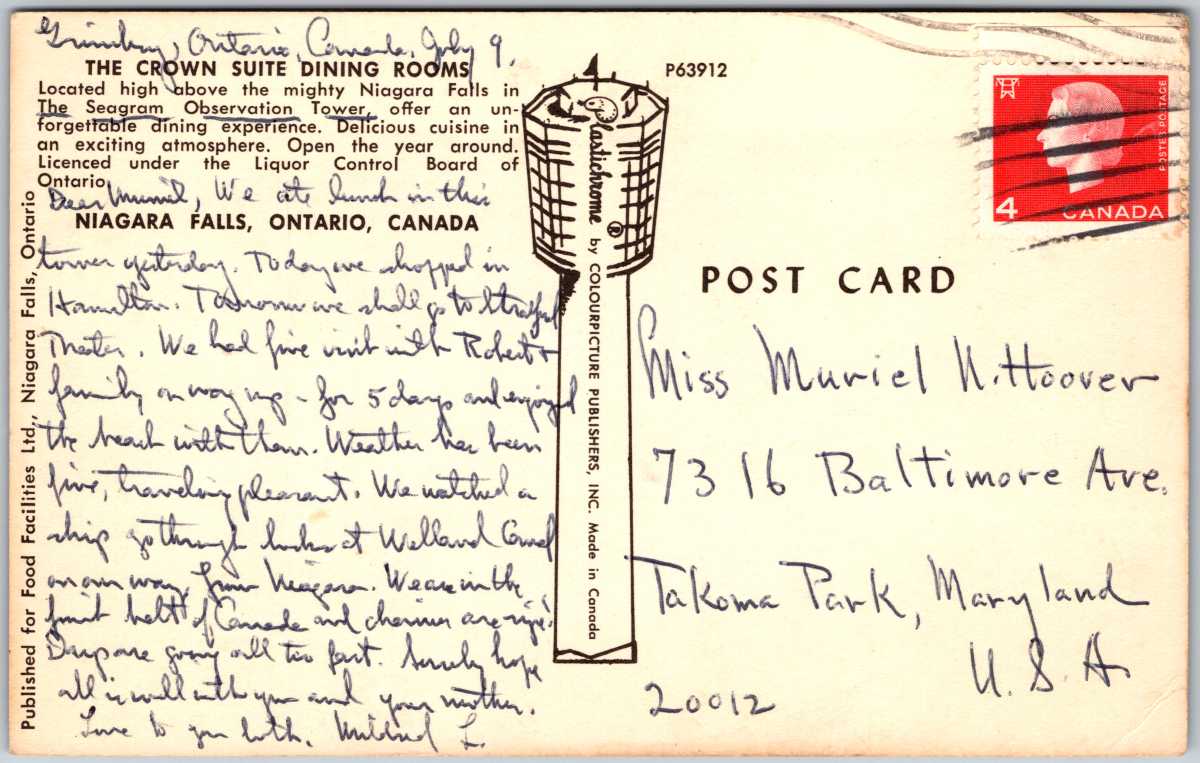 Grimsby, Ontario, Canada, July 9.
THE CROWN SUITE DINING ROOMS
Located high above the mighty Niagara Falls in
The Seagram Observation Tower, offer an un-
forgettable dining experience. Delicious cuisine in
an exciting atmosphere. Open the year around.
Licenced under the Liquor Control Board of
Ontario
Dear Muriel, We ate lunch in this
NIAGARA FALLS, ONTARIO, CANADA
tower yesterday. Today we shopped in
Hamilton. Tomorrow we shall go to Stratford
Theater. We had fine visit with Robert &
family on way up - for 5 days and enjoyed
the beach with them. Weather has been
fine, traveling pleasant. We watched a
ship go through locks at Welland Canal
on our way from Niagara. We are in the
fruit belt of Canada and cherries are ripe.
Days are going all too fast. Surely hope
all is well with you and your mother.
Love to you both. Mildred L.
Published for Food Facilities Ltd., Niagara Falls, Ontario
Plastichrome ® by COLOURPICTURE PUBLISHERS, INC. Made in Canada
P63912
POSTES POSTAGE
4 CANADA
POST CARD
Miss Muriel N. Hoover
7316 Baltimore Ave.
Takoma Park, Maryland
U. S. A.
20012